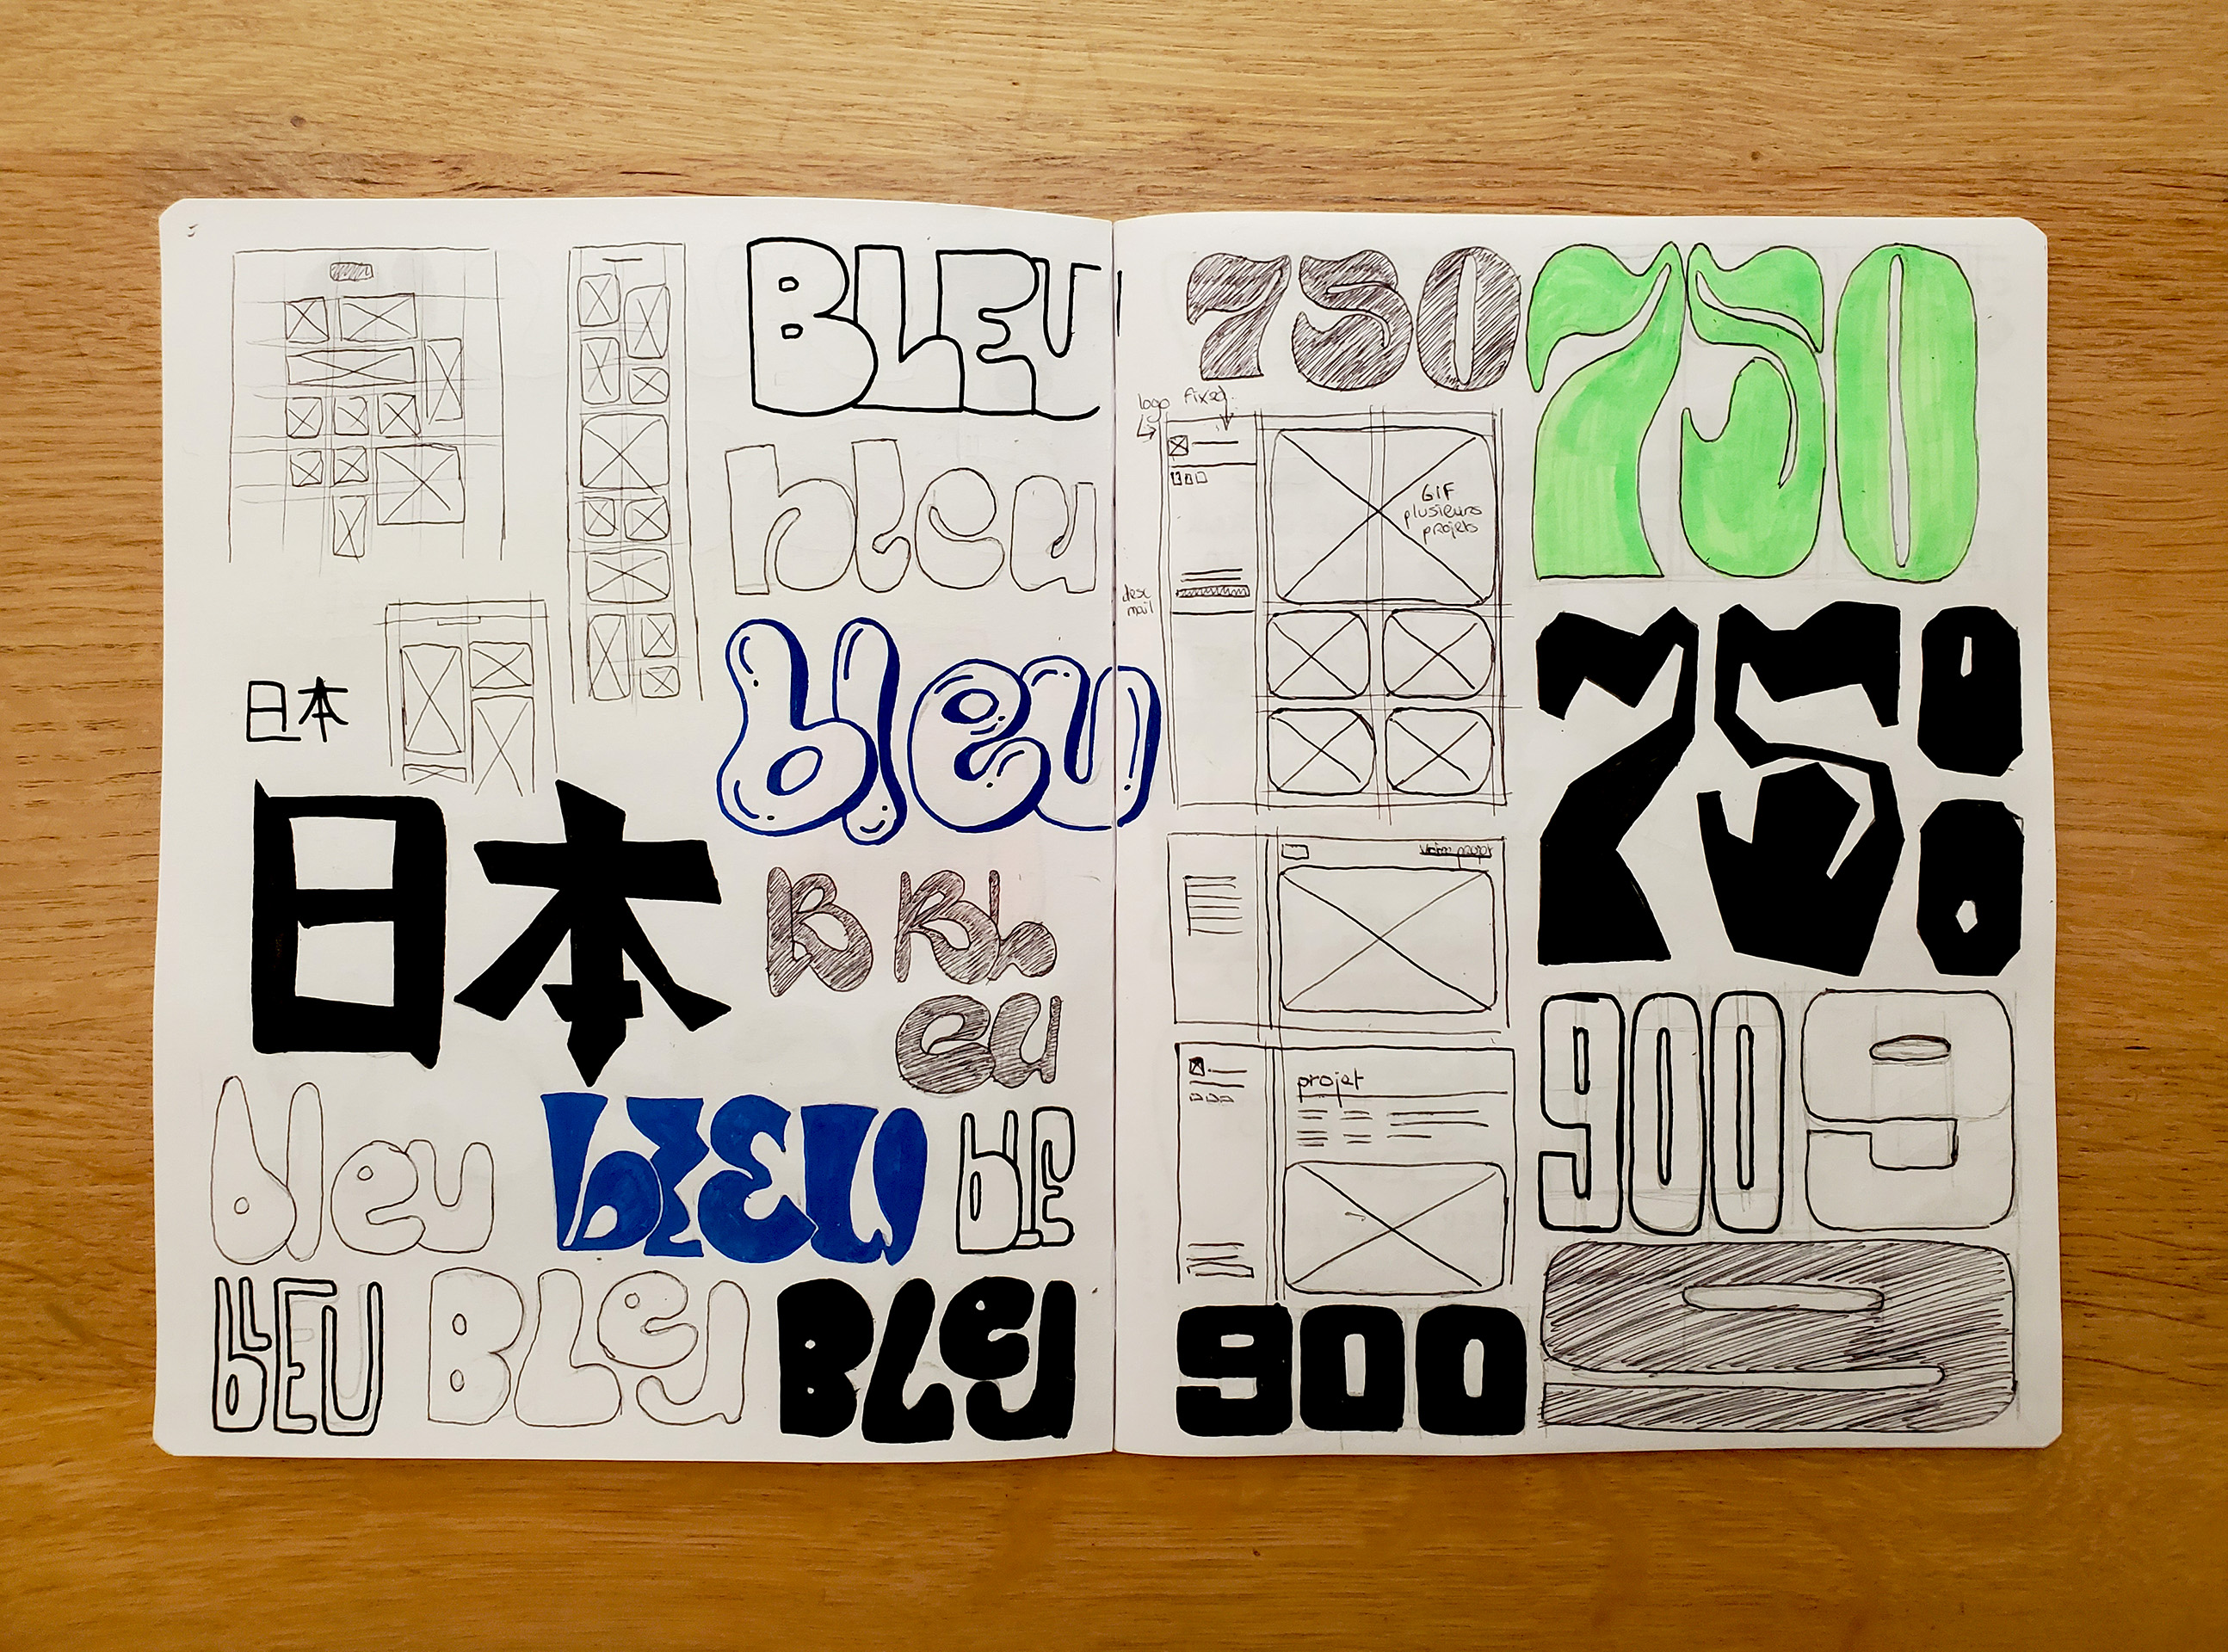 BLEU
bleu
bleu
日本
日本
B BL
eu
bleu
bLEU
blE
bLEU
BLeU
BLeU
750
750
logo fixed
GIF
plusieurs
projets
desc
mail
750
projet
900
9
900
9